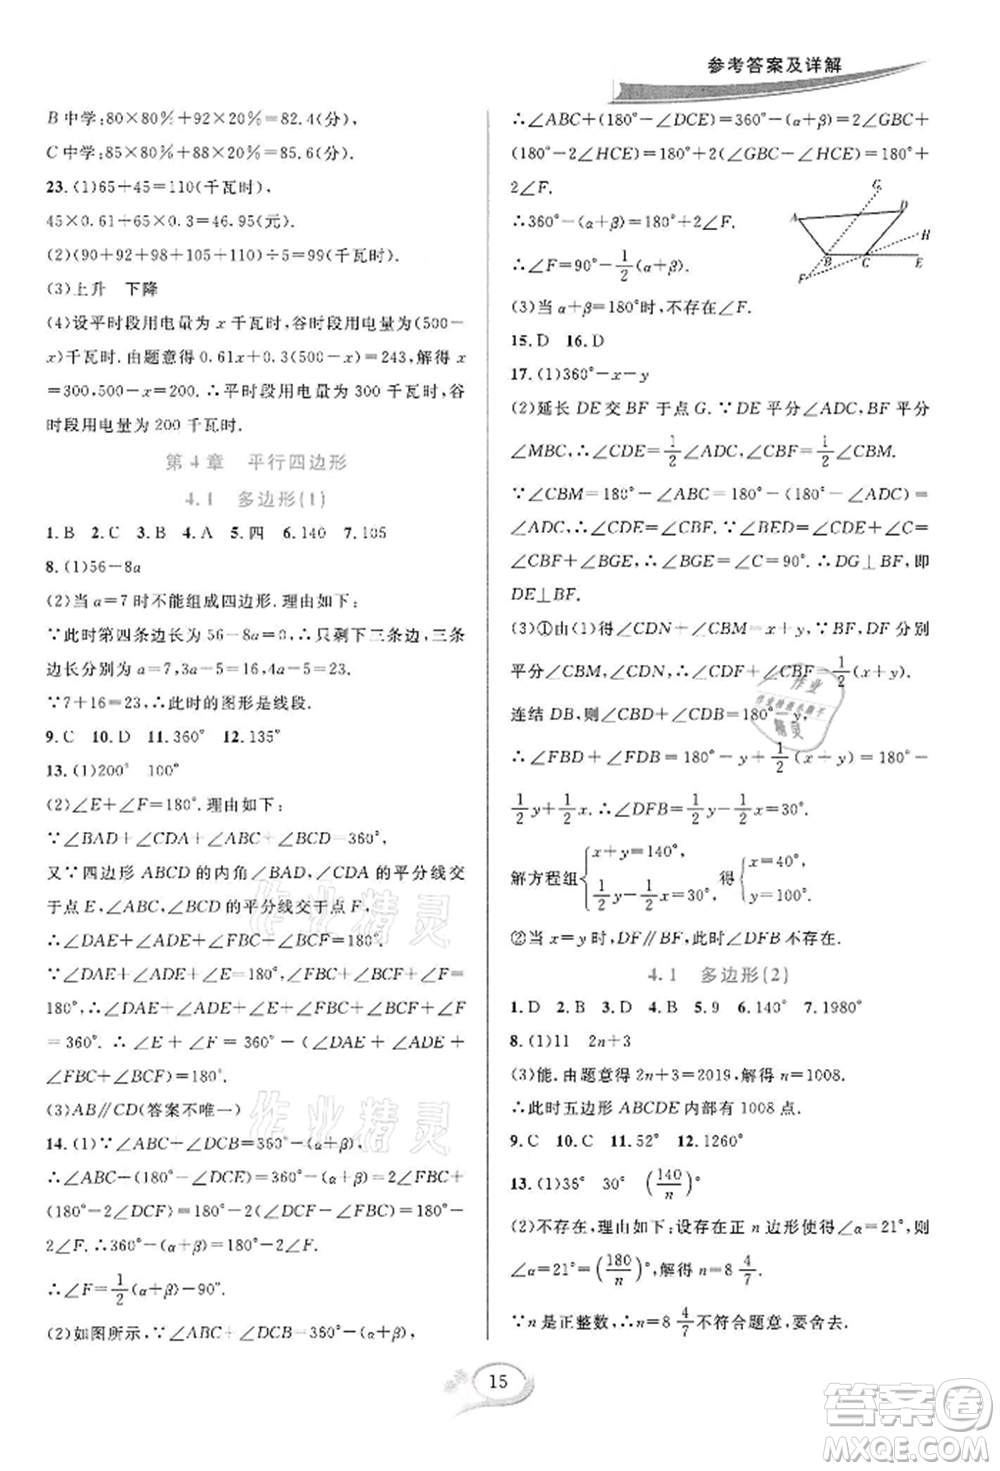 参考答案及详解
B中学:80×80%+92×20%=82.4(分),
C中学:85×80%+88×20%=85.6(分).
23.(1)65+45=110(千瓦时),
45×0.61+65×0.3=46.95(元).
(2)(90+92+98+105+110)÷5=99(千瓦时).
(3)上升 下降
(4)设平时段用电量为x千瓦时,谷时段用电量为(500-
x)千瓦时.由题意得0.61x+0.3(500-x)=243,解得x=
300,500-x=200.∴平时段用电量为300千瓦时,谷
时段用电量为200千瓦时.
第4章 平行四边形
4.1 多边形(1)
1.B 2.C 3.B 4.A 5.四 6.140 7.105
8.(1)56-8a
(2)当a=7时不能组成四边形.理由如下:
∵此时第四条边长为56-8a=0,∴只剩下三条边,三条
边长分别为a=7,3a-5=16,2a+9=23.
∵7+16=23,∴此时的图形是线段.
9.C 10.D 11.360° 12.135°
13.(1)200° 100°
(2)∠E+∠F=180°.理由如下:
∵∠BAD+∠CDA+∠ABC+∠BCD=360°,
又∵四边形ABCD的内角∠BAD,∠CDA的平分线交
于点E,∠ABC,∠BCD的平分线交于点F,
∴∠DAE+∠ADE+∠FBC+∠BCF=180°.
∵∠DAE+∠ADE+∠E=180°,∠FBC+∠BCF+∠F
=180°,∴∠DAE+∠ADE+∠E+∠FBC+∠BCF+∠F
=360°.∴∠E+∠F=360°-(∠DAE+∠ADE+∠FBC
+∠BCF)=180°.
(3)AB∥CD(答案不唯一)
14.(1)∵∠ABC+∠DCB=360°-(α+β),
∴∠ABC+(180°-∠DCE)=360°-(α+β)=2∠FBC+
(180°-2∠DCF)=180°-2(∠DCF-∠FBC)=180°-
2∠F.∴360°-(α+β)=180°-2∠F.
∴∠F=1/2(α+β)-90°.
(2)如图所示,∵∠ABC+∠DCB=360°-(α+β),
∴∠ABC+(180°-∠DCE)=360°-(α+β)=2∠GBC+
(180°-2∠HCE)=180°+2(∠GBC-∠HCE)=180°+
2∠F.
∴360°-(α+β)=180°+2∠F.
∴∠F=90°-1/2(α+β).
G
A
D
H
B
C
E
F
(3)当α+β=180°时,不存在∠F.
15.D 16.D
17.(1)360°-x-y
(2)延长DE交BF于点G.∵DE平分∠ADC,BF平分
∠MBC,∴∠CDE=1/2∠ADC,∠CBF=1/2∠CBM.
∵∠CBM=180°-∠ABC=180°-(180°-∠ADC)=
∠ADC,∴∠CDE=∠CBF.又∵∠BGE+∠C+
∠CBF=∠BGE+∠CDE+∠C,∴DG⊥BF,即
DE⊥BF.
(3)①由(1)得∠CDN+∠CBM=x+y,∵BF,DF分别
平分∠CBM,∠CDN,∴∠CDF+∠CBF=1/2(x+y).
连结DB,则∠CBD+∠CDB=180°-y,
∴∠FBD+∠FDB=180°-y+1/2(x+y)=180°-
1/2y+1/2x.∴∠DFB=1/2y-1/2x=30°.
解方程组{x+y=140°, 1/2y-1/2x=30°, 得{x=40°, y=100°.
②当x=y时,DF∥BF,此时∠DFB不存在.
4.1 多边形(2)
1.D 2.B 3.D 4.B 5.9 6.140° 7.1980°
8.(1)11 2n+3
(3)能.由题意可得2n+3=2019,解得n=1008.
∴此时五边形ABCDE内部有1008点.
9.C 10.C 11.52° 12.1260°
13.(1)36° 30° (140/n)°
(2)不存在,理由如下:设存在正n边形使得∠α=21°,则
∠α=21°=(180/n)°,解得n=8 4/7.
∵n是正整数,∴n=8 4/7不符合题意,要舍去.
15
作业精灵
作业精灵
答案圈
MXQE.COM